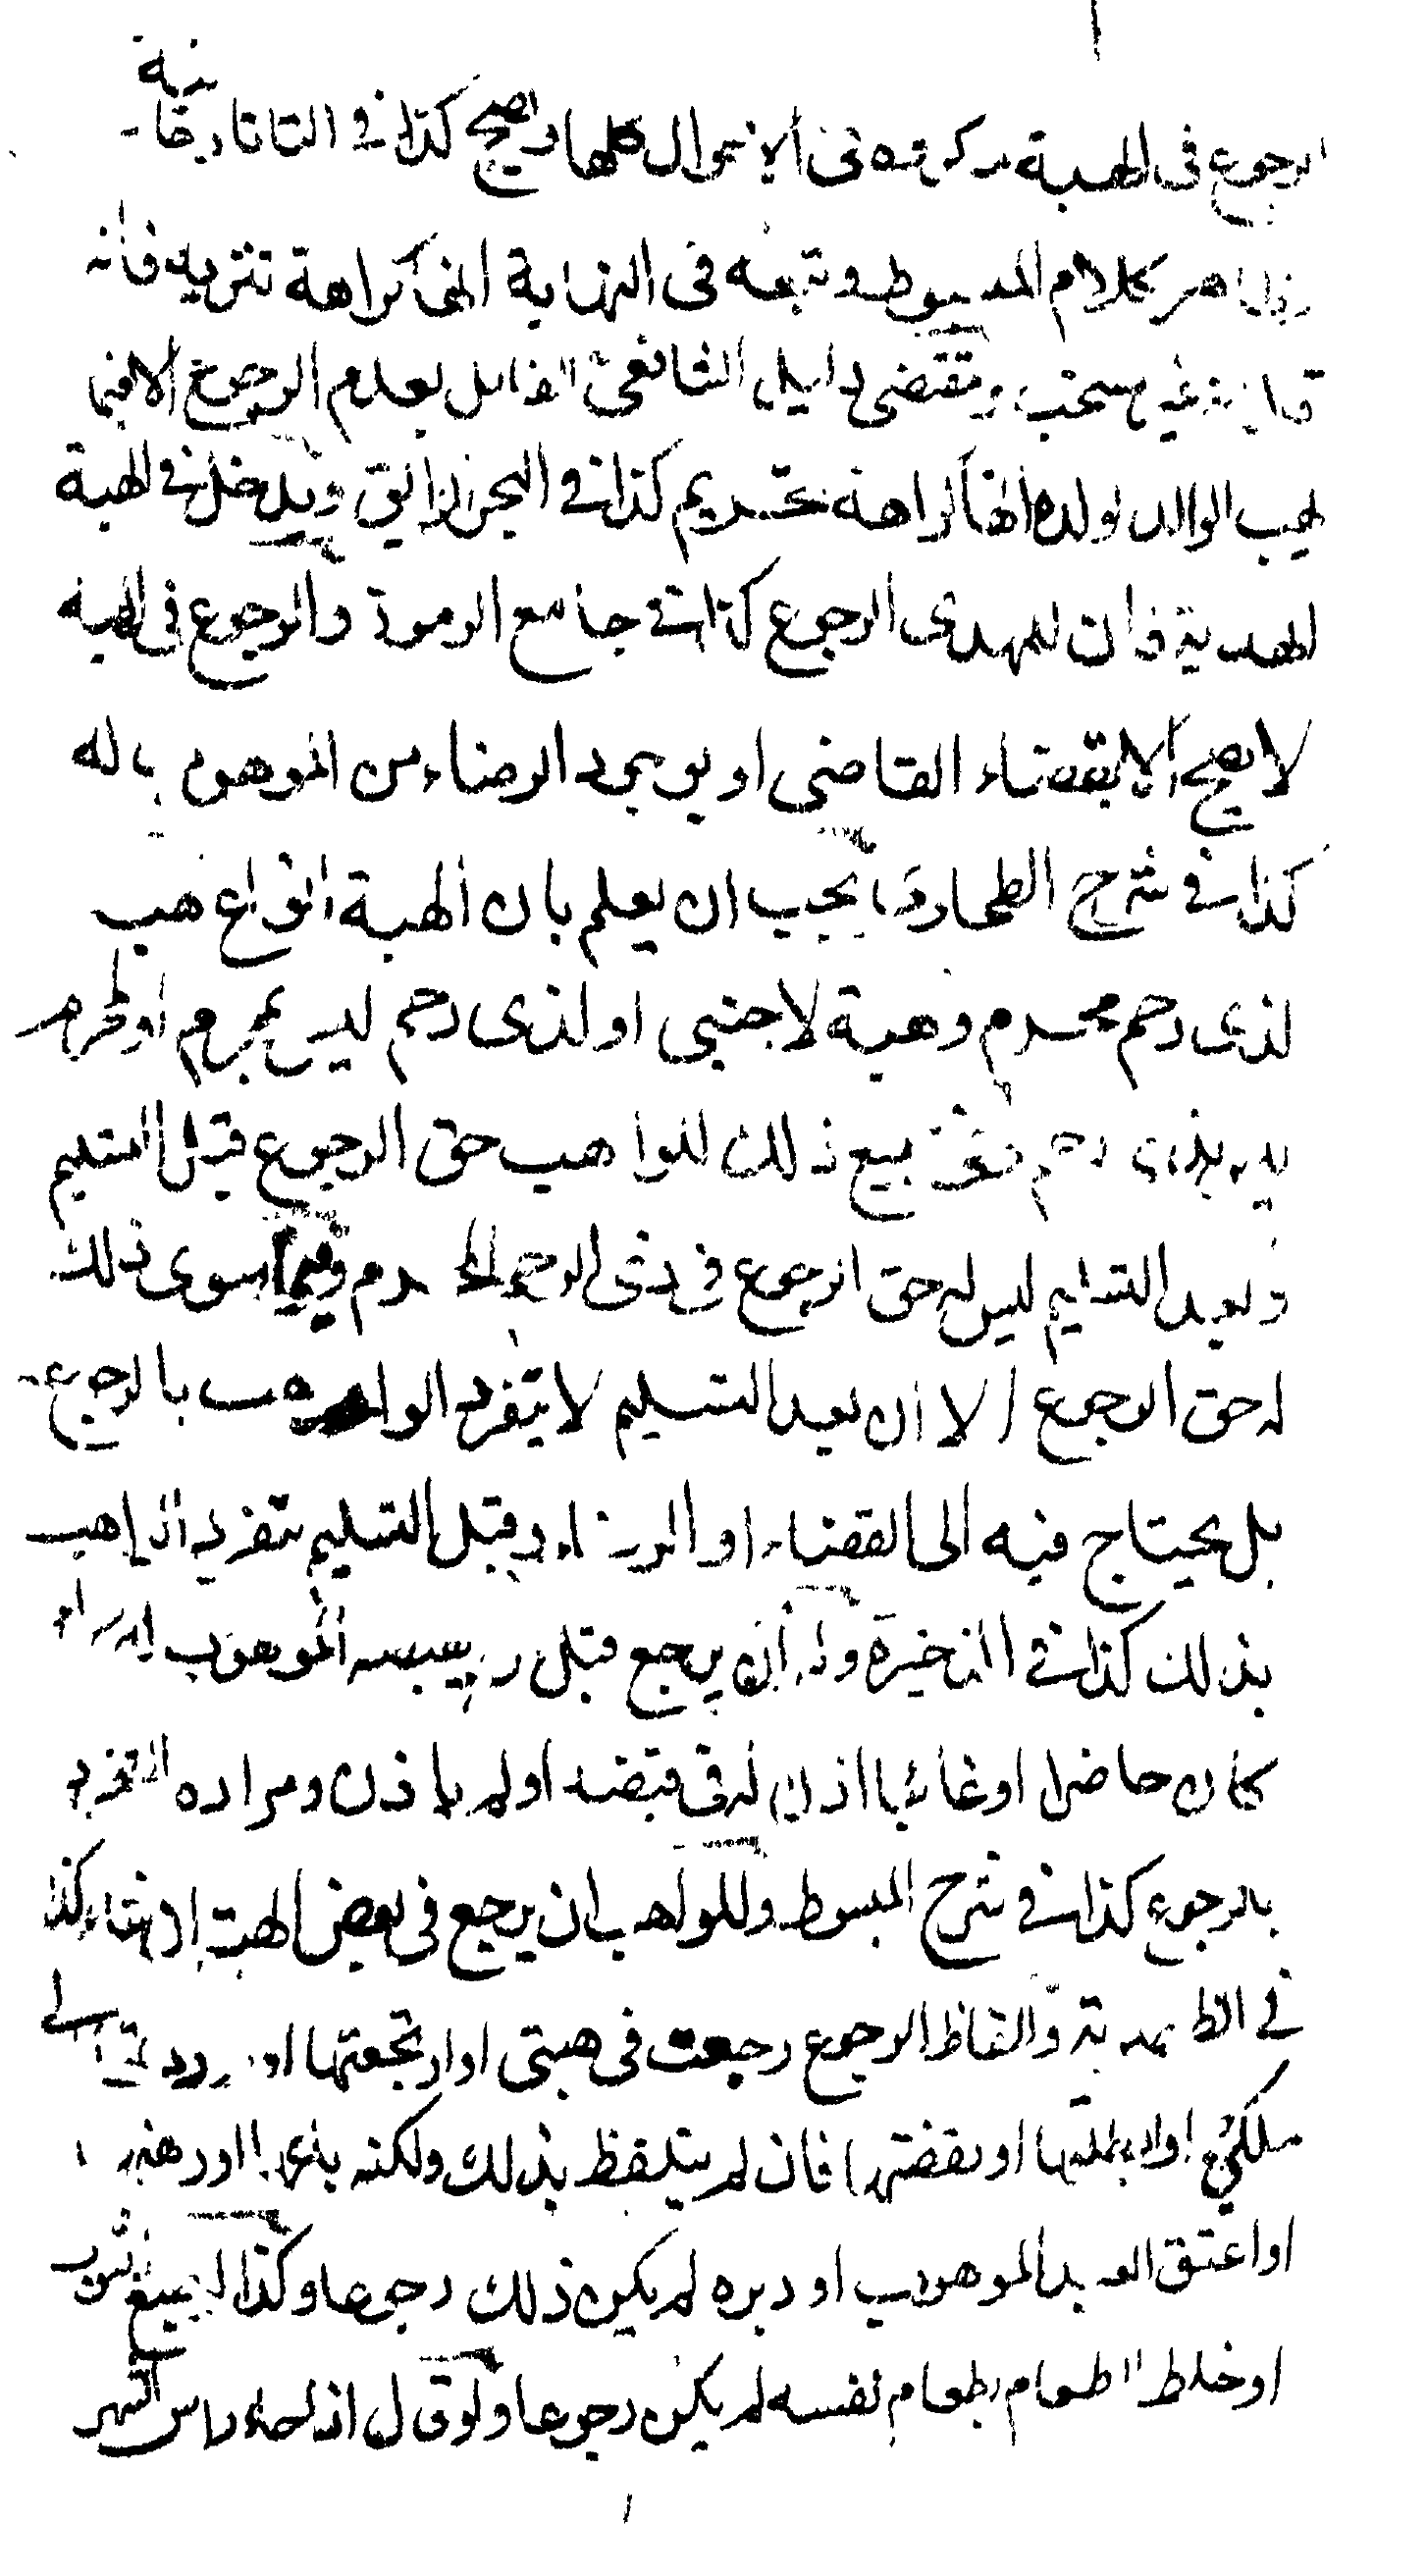 الرجوع فى الهبة مكروه فى الاحوال كلها ويصح كذا فى التاتارخانية
وظاهر كلام المبسوط وتبعه فى النهاية انها كراهة تنزيه فانه
قال غير مستحب ومقتضى دليل الشافعى القائل بعدم الرجوع الا فيما
يهب الوالد لولده انها كراهة تحريم كذا فى البحر الرائق ويدخل فى الهبة
الهدية فان للمهدى الرجوع كذا فى جامع الرموز والرجوع فى الهبة
لا يصح الا بقضاء القاضى او يوجد الرضاء من الموهوب له
كذا فى شرح الطحاوى يجب ان يعلم بان الهبة انواع هبة
لذى رحم محرم وهبة لاجنبى او لذى رحم ليس بمحرم او لمحرم
ليس بذى رحم وفى جميع ذلك للواهب حق الرجوع قبل التسليم
وبعد التسليم ليس له حق الرجوع فى ذى الرحم المحرم وفيما سوى ذلك
له حق الرجوع الا ان بعد التسليم لا يتفرد الواهب بالرجوع
بل يحتاج فيه الى القضاء او الرضاء وقبل التسليم يتفرد الواهب
بذلك كذا فى الذخيرة وله ان يرجع قبل الموهوب له
كان حاضرا او غائبا اذن له فى قبضه او لم ياذن ومراده التفرد
بالرجوع كذا فى شرح المبسوط وللواهب ان يرجع فى بعض الهبة ان شاء كذا
فى الظهيرية والفاظ الرجوع رجعت فى هبتى او ارتجعتها او رددتها الى
ملكى او ابطلتها او نقضتها فان لم يتلفظ بذلك ولكنه باعها او رهنها
او اعتق العبد الموهوب او دبره لم يكن ذلك رجوعا وكذا لو صبغ الثوب
او خلط الطعام بطعام نفسه لم يكن رجوعا ولو قال اذا جاء راس الشهر